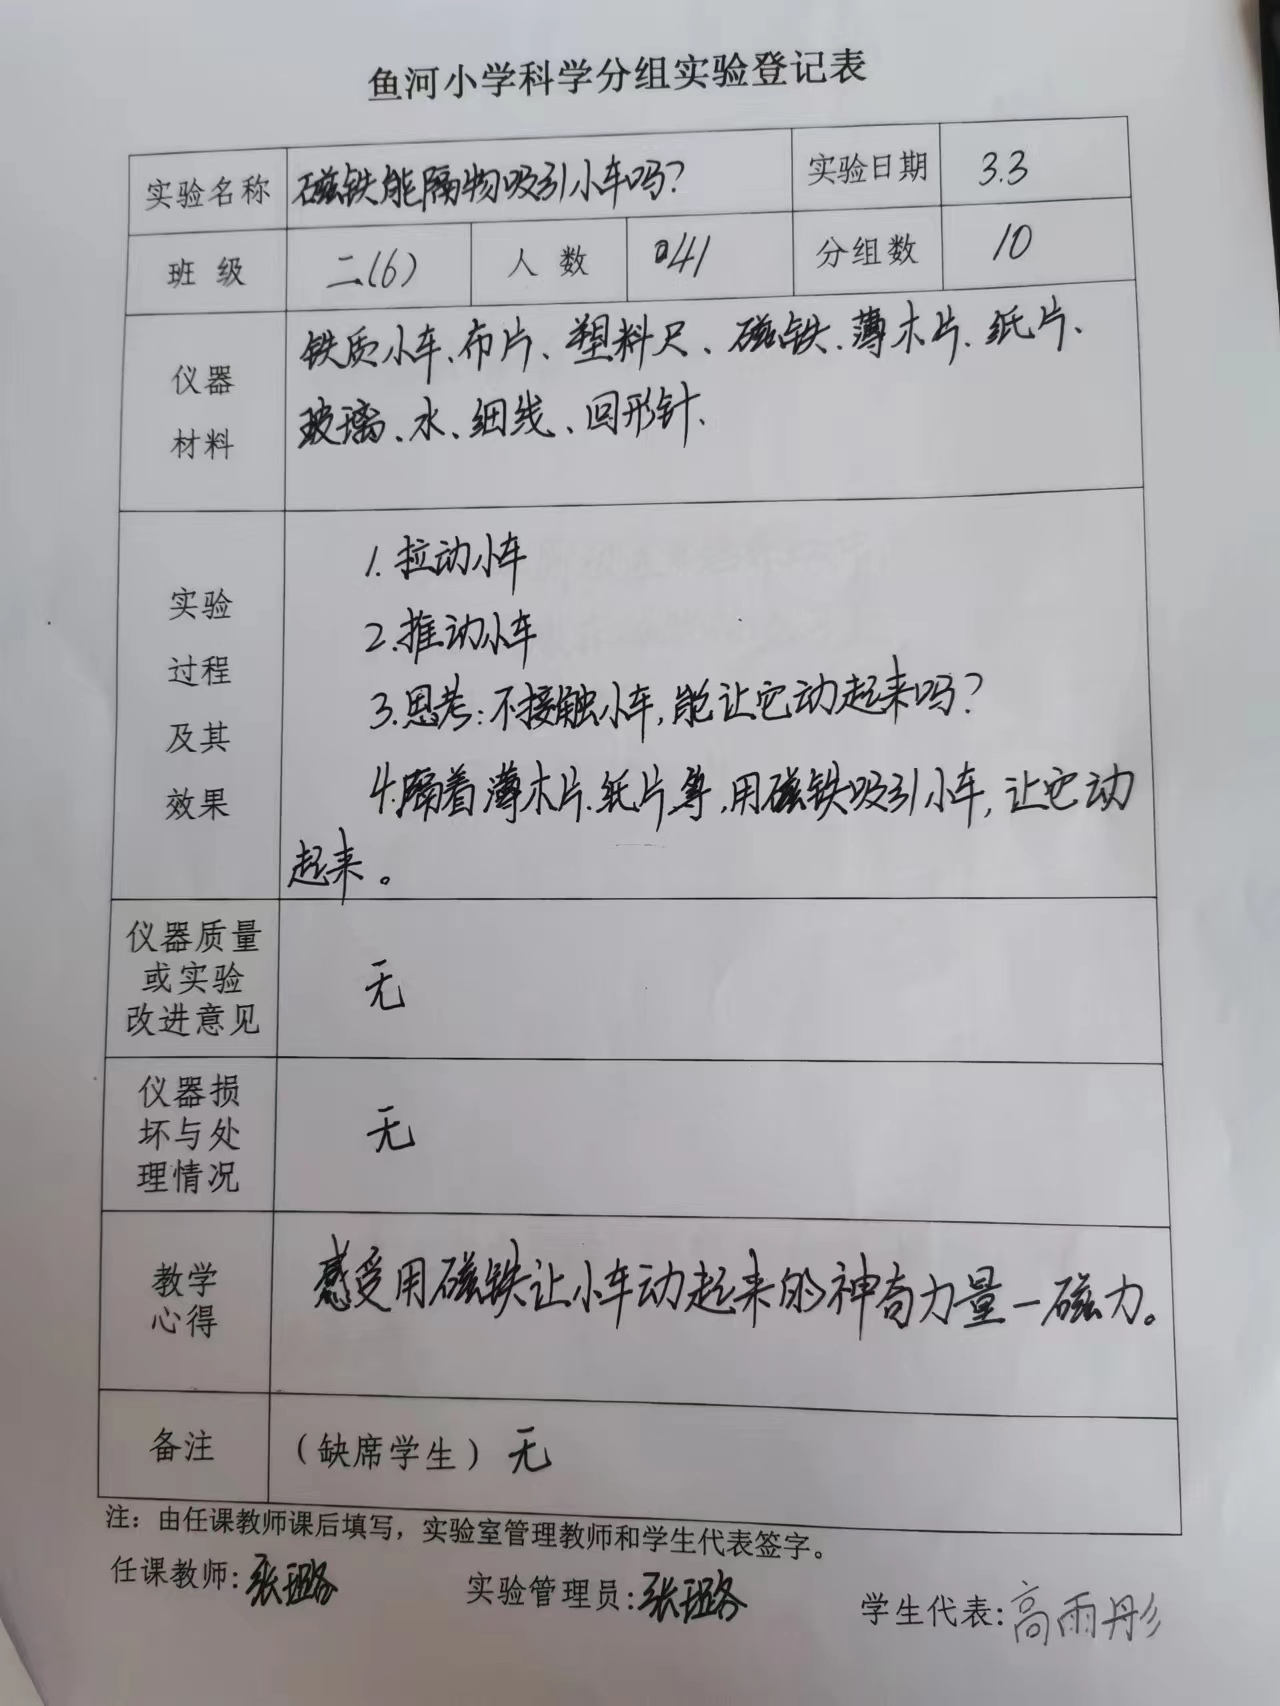 鱼河小学科学分组实验登记表
实验名称 磁铁能隔物吸引小车吗? 实验日期 3.3
班 级 二(6) 人 数 41 分组数 10
仪器
材料
铁质小车、布片、塑料尺、磁铁、薄木片、纸片、
玻璃、水、细线、回形针、
实验
过程
及其
效果
1.拉动小车
2.推动小车
3.思考:不接触小车,能让它动起来吗?
4.隔着薄木片、纸片等,用磁铁吸引小车,让它动
起来。
仪器质量
或实验
改进意见
无
仪器损
坏与处
理情况
无
教学
心得
感受用磁铁让小车动起来的神奇力量一磁力。
备注 (缺席学生)无
注:由任课教师课后填写,实验室管理教师和学生代表签字。
任课教师:张 实验管理员:张 学生代表:高雨彤